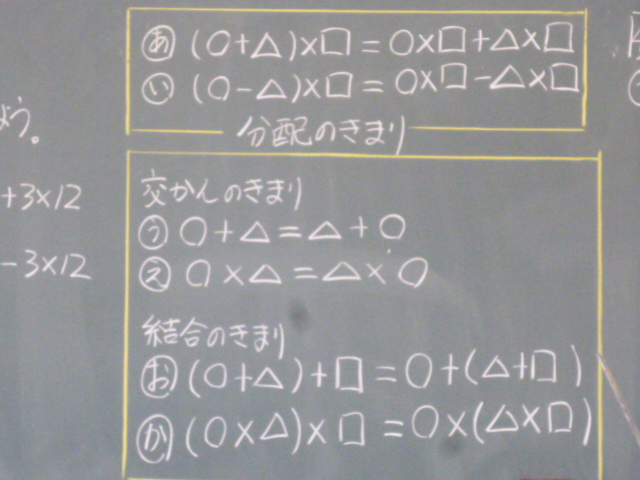 あ (○+△)×□=○×□+△×□
い (○-△)×□=○×□-△×□
分配のきまり
よう。
+3×12
-3×12
交かんのきまり
う ○+△=△+○
え ○×△=△×○
結合のきまり
お (○+△)+□=○+(△+□)
か (○×△)×□=○×(△×□)